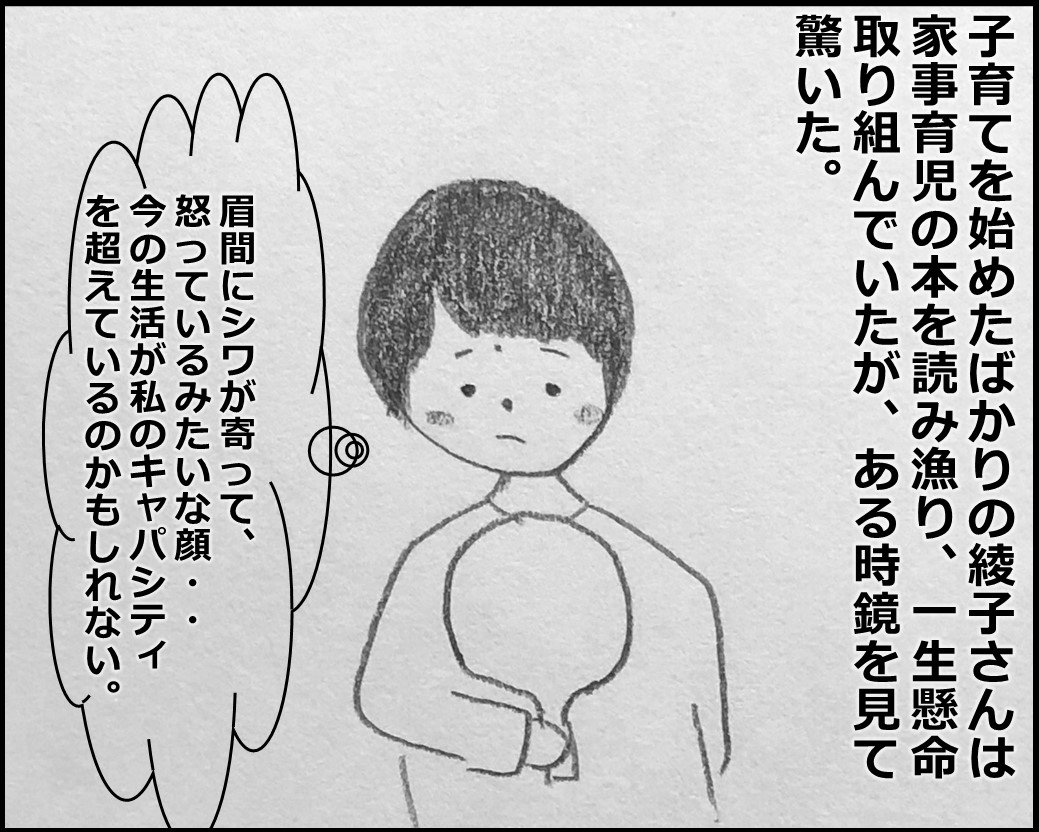 子育てを始めたばかりの綾子さんは
家事育児の本を読み漁り、一生懸命
取り組んでいたが、ある時鏡を見て
驚いた。
眉間にシワが寄って、
怒っているみたいな顔・・
今の生活が私のキャパシティ
を超えているのかもしれない。